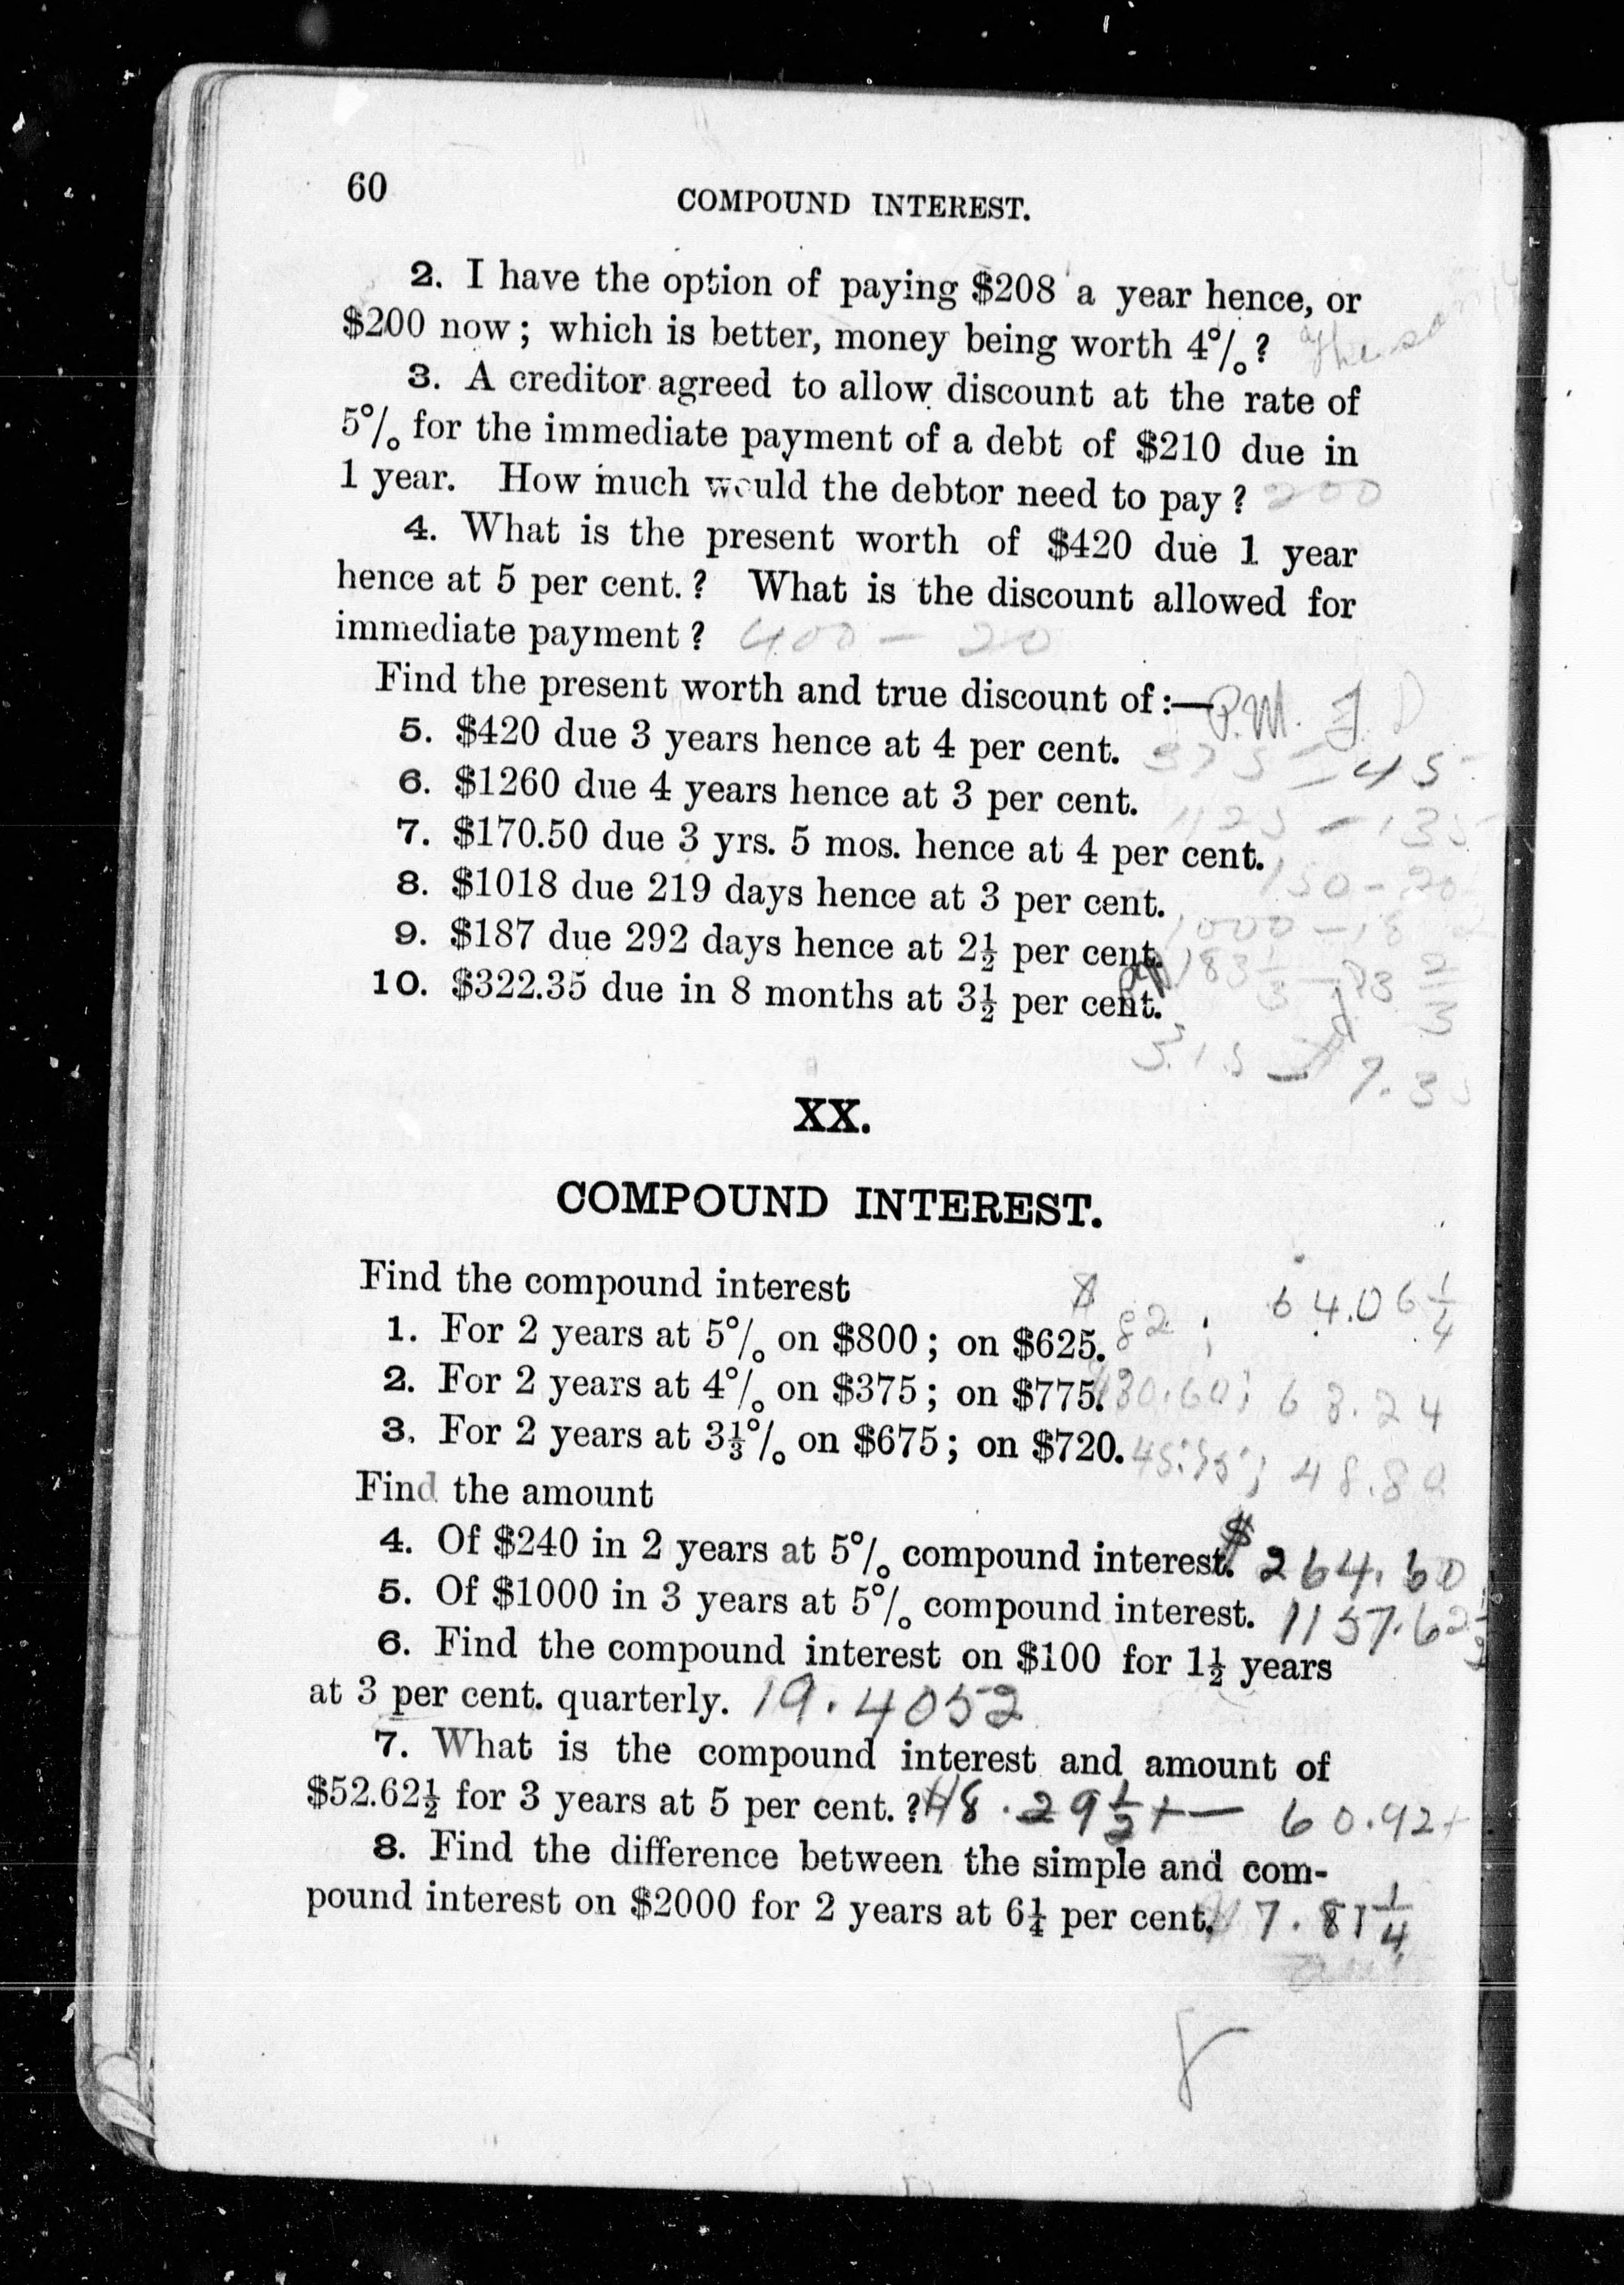 60
COMPOUND INTEREST.
2. I have the option of paying $208 a year hence, or
$200 now; which is better, money being worth 4%? The same
3. A creditor agreed to allow discount at the rate of
5% for the immediate payment of a debt of $210 due in
1 year. How much would the debtor need to pay? 200
4. What is the present worth of $420 due 1 year
hence at 5 per cent.? What is the discount allowed for
immediate payment? 400 — 20
Find the present worth and true discount of:—
5. $420 due 3 years hence at 4 per cent. 375 — 45
6. $1260 due 4 years hence at 3 per cent. 1125 — 135
7. $170.50 due 3 yrs. 5 mos. hence at 4 per cent. 150 — 20
8. $1018 due 219 days hence at 3 per cent. 1000 — 18
9. $187 due 292 days hence at 2½ per cent. 183⅓ — 3⅔
10. $322.35 due in 8 months at 3½ per cent.
315 — 7.35
XX.
COMPOUND INTEREST.
Find the compound interest
1. For 2 years at 5% on $800; on $625. $82; 64.06¼
2. For 2 years at 4% on $375; on $775. 30.60; 63.24
3. For 2 years at 3⅓% on $675; on $720. 45.75; 48.80
Find the amount
4. Of $240 in 2 years at 5% compound interest. $264.60
5. Of $1000 in 3 years at 5% compound interest. 1157.62½
6. Find the compound interest on $100 for 1½ years
at 3 per cent. quarterly. 19.4052
7. What is the compound interest and amount of
$52.62½ for 3 years at 5 per cent.? $8.29½+ — 60.92+
8. Find the difference between the simple and com-
pound interest on $2000 for 2 years at 6¼ per cent. 7.81¼